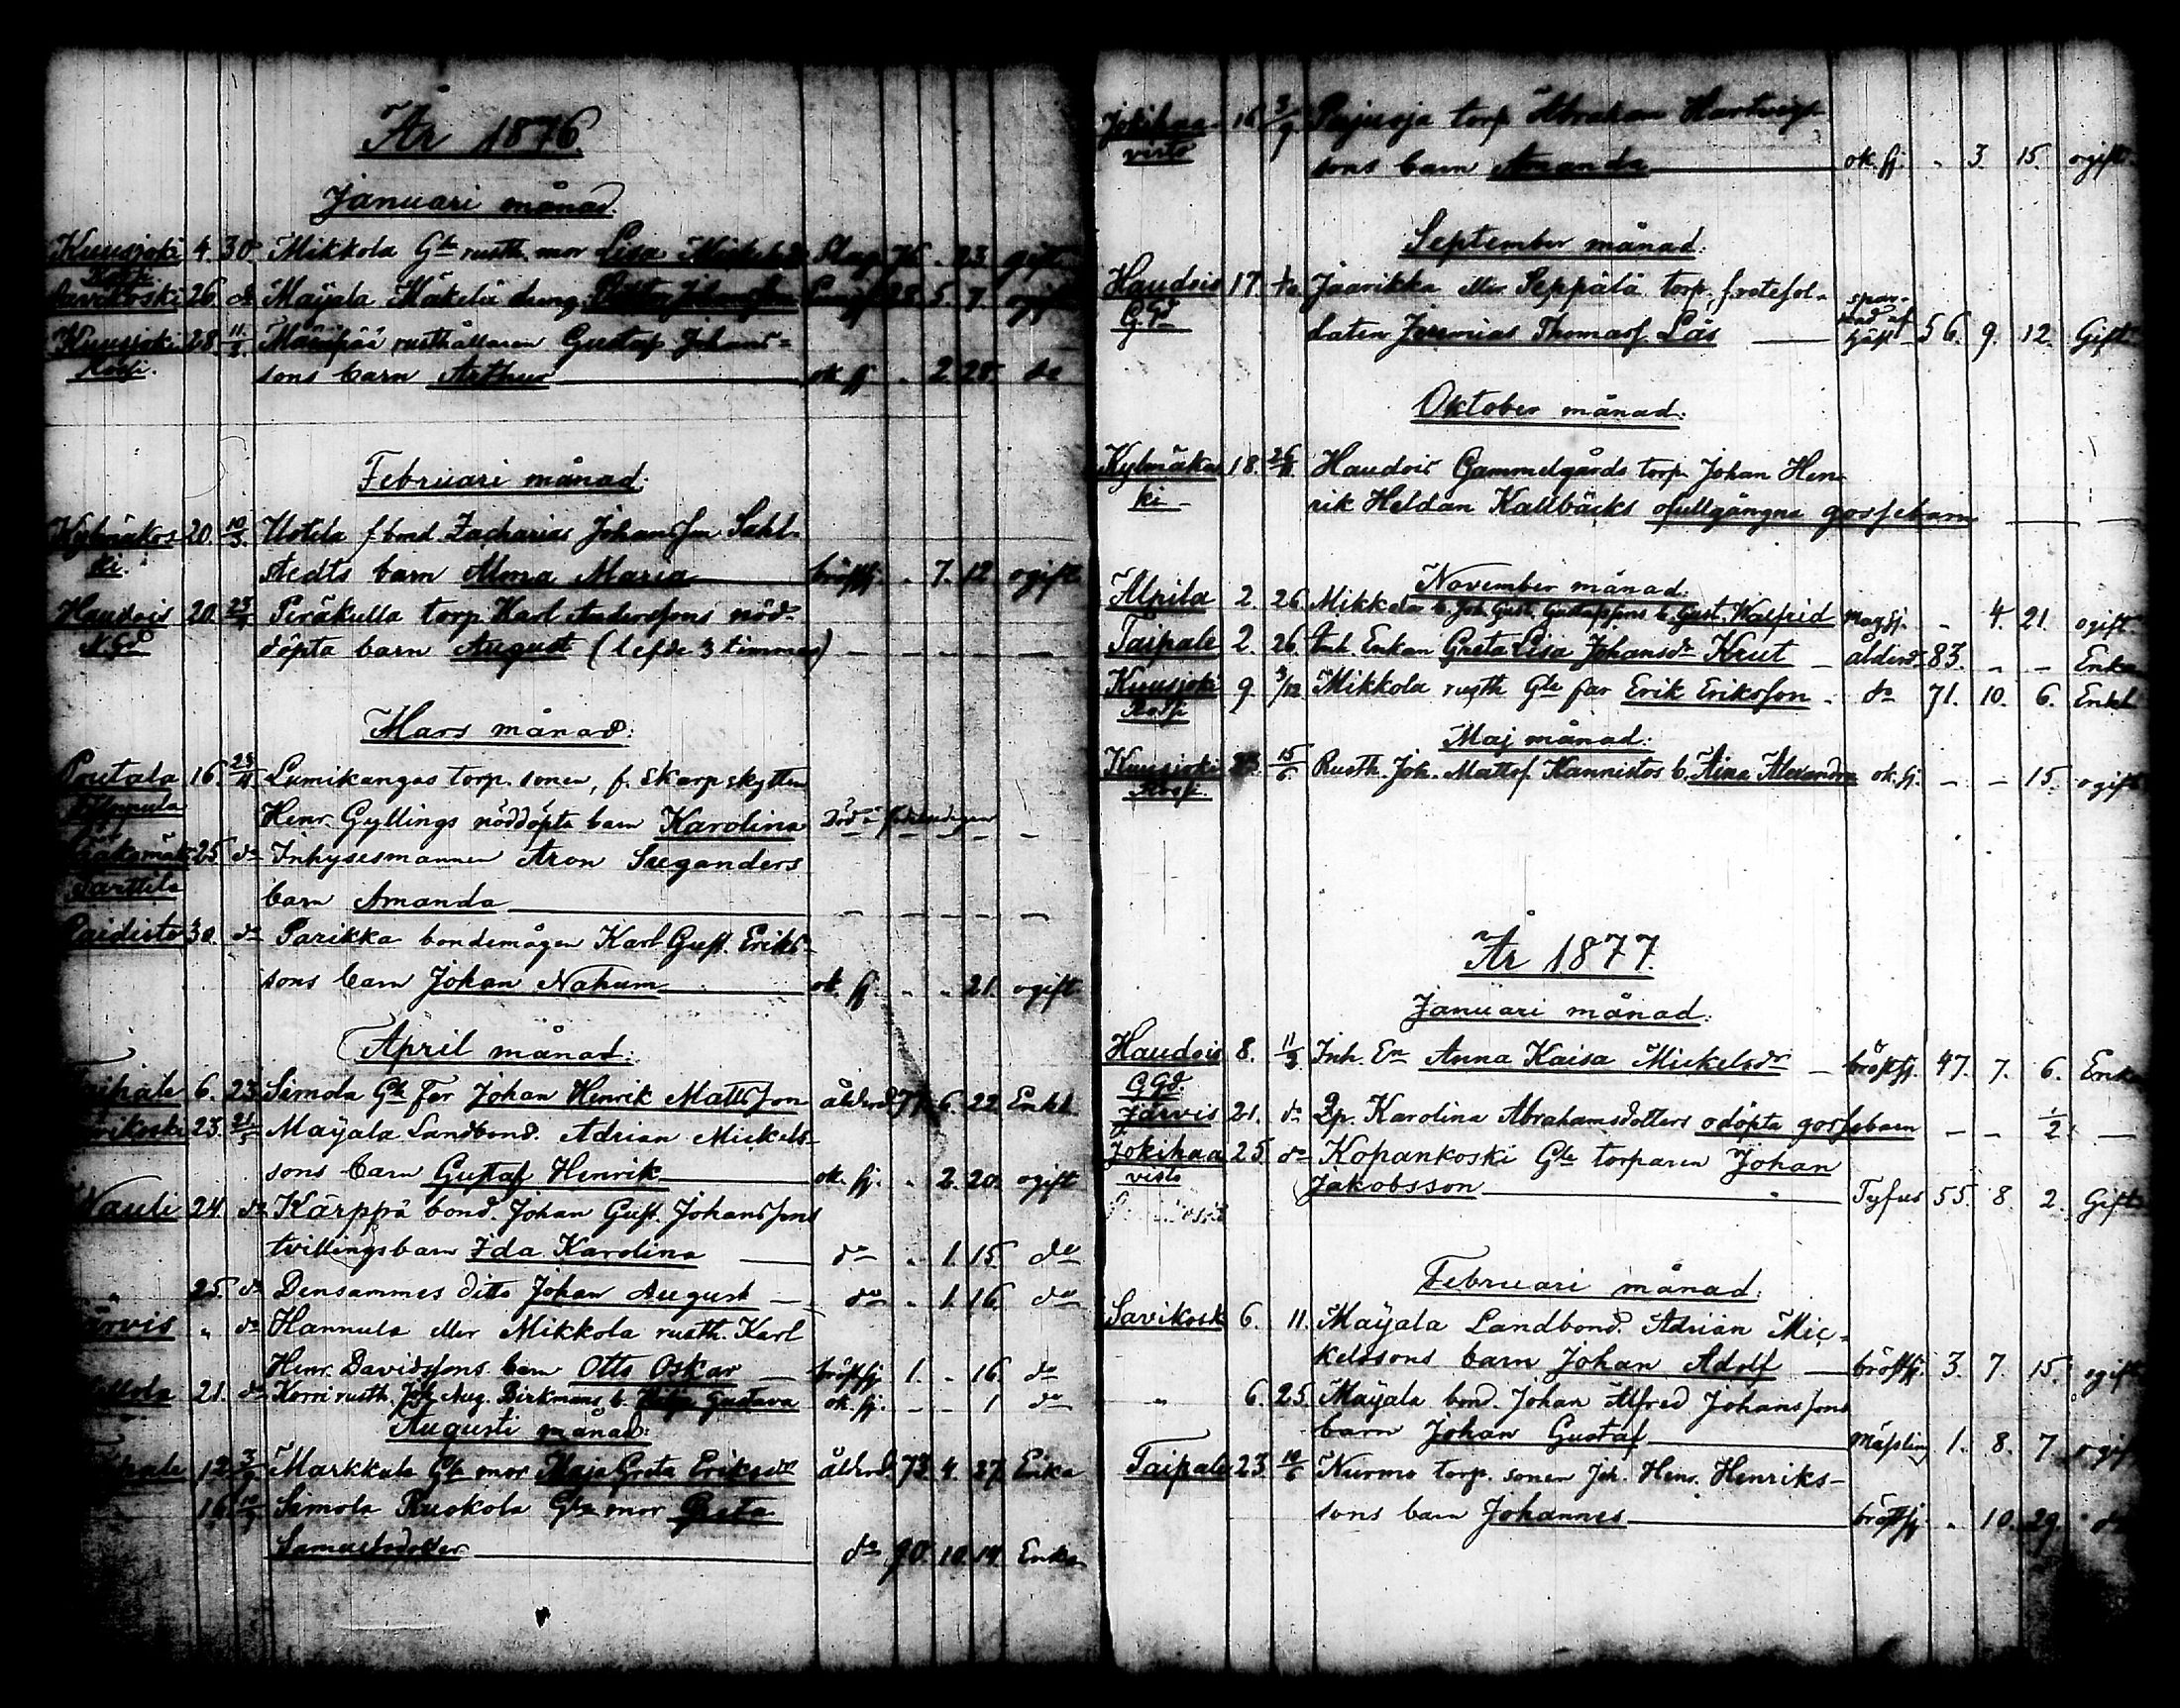 År 1876.
Januari månad.
Kuusjoki 4. 30. Mikkola Gle rusth. mor Lisa Slag 76 - 23 gift
Rossi
Savikoski 26. do Mäyälä Mäkelä dreng 28. 5. 7. ogift
Kuusjoki 28. 11/3. rusthållaren Gustaf Johans=
Rossi. sons barn Arthur ok. sj. „ 2. 28. do
Februari månad.
Kylmäkos 20. 10/3. Uotila f. bond. Zacharias Johansson Sahl-
ki. stedts barn Alma Maria bröstsj. „ 7. 12 ogift
Haudois 20. Peräkulla torp. Karl Anderssons nöd-
N.Gd döpta barn August (lefde 3 timmar) — — — — —
Mars månad:
Poutala 16. 23/4 Lumikangas torp. sonen, f. Skarpskytten
Henr. Gyllings nöddöpta barn Karolina Död — — —
25. do Inhysesmannen Aron Seeganders
Parttila barn Amanda — — — — —
Raidisto 30. do Parikka bondemågen Karl Gust. Eriks-
sons barn Johan Nahum ok. sj. „ „ 21. ogift
April månad:
Taipale 6. 23. Simola Gle Far Johan Henrik Mattsson ålderd. 77. 6. 22 Enkl.
Savikoski 23. 21/5 Mäyälä Landbond. Adrian Mickels-
sons barn Gustaf Henrik ok. sj. „ 2. 20. ogift
Nauli 24. do Kärppä bond. Johan Gust. Johanssons
tvillingsbarn Ida Karolina do „ 1. 15. do
„ 25. do Densammes ditto Johan August do „ 1. 16. do
Järvis „ do Hannula eller Mikkola rusth. Karl
Henr. Davidssons barn Otto Oskar bröstsj. 1. „ 16. do
21. do Korri rusth. Joh. Aug. Birkmans b. Hilja Gustava ok. sj. — — 1 do
Augusti månad:
Taipale 12. 3/9 Markkula Gle mor Maja Greta Eriksdr ålderd. 73. 4. 27. Enka
16. 10/9 Simola Ruokola Gle mor Greta
Samuelsdotter do 90. 10. 14. Enka
Jokihaa- 16. 3/9 Pajuoja torp. Abraham Hartvigs-
visto sons barn Amanda ok. sj. „ 3 15. ogift
September månad:
Haudois 17. Jaarikka eller Seppälä torp. f. rotesol-
G.Gd daten Jeremias Thomass. Läs häst 56. 9. 12. Gift
Oktober månad:
Kylmäkos 18. 26/11 Haudois Gammelgårds torp. Johan Hen-
ki rik Heldan Kallbäcks ofullgångna gossebarn — —
November månad:
Alpila 2. 26. Mikkela b. Joh. Gust. Gustafssons b. Gust. Walfrid magsj. — 4. 21. ogift
Taipale 2. 26. Inh. Enkan Greta Lisa Johansdr Krut ålderd. 83. — — Enka
Kuusjoki 9. 3/12 Mikkola rusth. Gle far Erik Eriksson do 71. 10. 6. Enkl.
Rossi
Maj månad:
Kuusjoki 15/6 Rusth. Joh. Mattss. Kannistos b. Aina Alexandra ok. sj. — — 15. ogift
Rossi.
År 1877.
Januari månad:
Haudois 8. 11/3 Inh. En Anna Kaisa Mickelsdr bröstsj. 47. 7. 6. Enka
G.Gd.
Järvis 21. do Qp. Karolina Abrahamsdotters odöpta gossebarn — — 1/2 —
Jokihaa 25. do Kopankoski Gle torparen Johan
visto Jakobsson Tyfus 55. 8. 2. Gift
Februari månad.
Savikosk 6. 11. Mäyälä Landbond. Adrian Mic-
kelssons barn Johan Adolf bröstsj. 3. 7. 15. ogift
„ 6. 25. Mäyälä bond. Johan Alfred Johanssons
barn Johan Gustaf Mässling 1. 8. 7. ogift
Taipale 23. Nurmo torp. sonen Joh. Henr. Henriks-
sons barn Johannes bröstsj. „ 10. 29. do